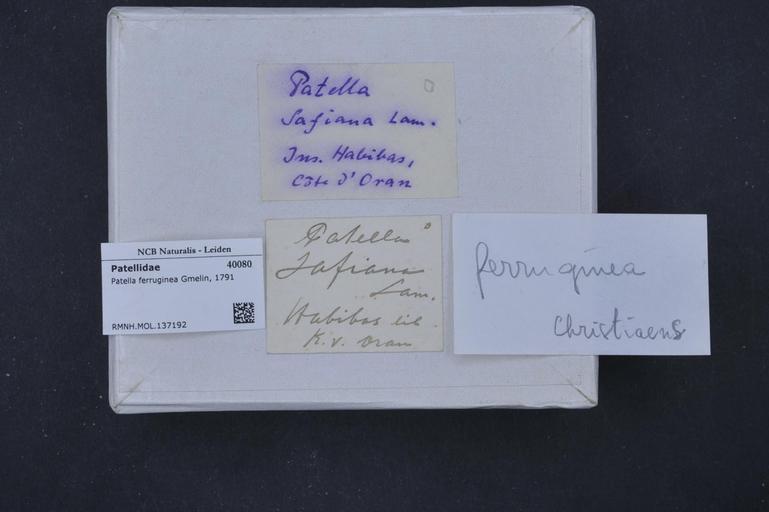 Patella
Safiana Lam.
Ins. Habibas,
Côte d'Oran
NCB Naturalis - Leiden
Patellidae 40080
Patella ferruginea Gmelin, 1791
RMNH.MOL.137192
Patella
Safiana
Lam.
Habibas eil.
K. v. Oran
ferruginea
Christiaens